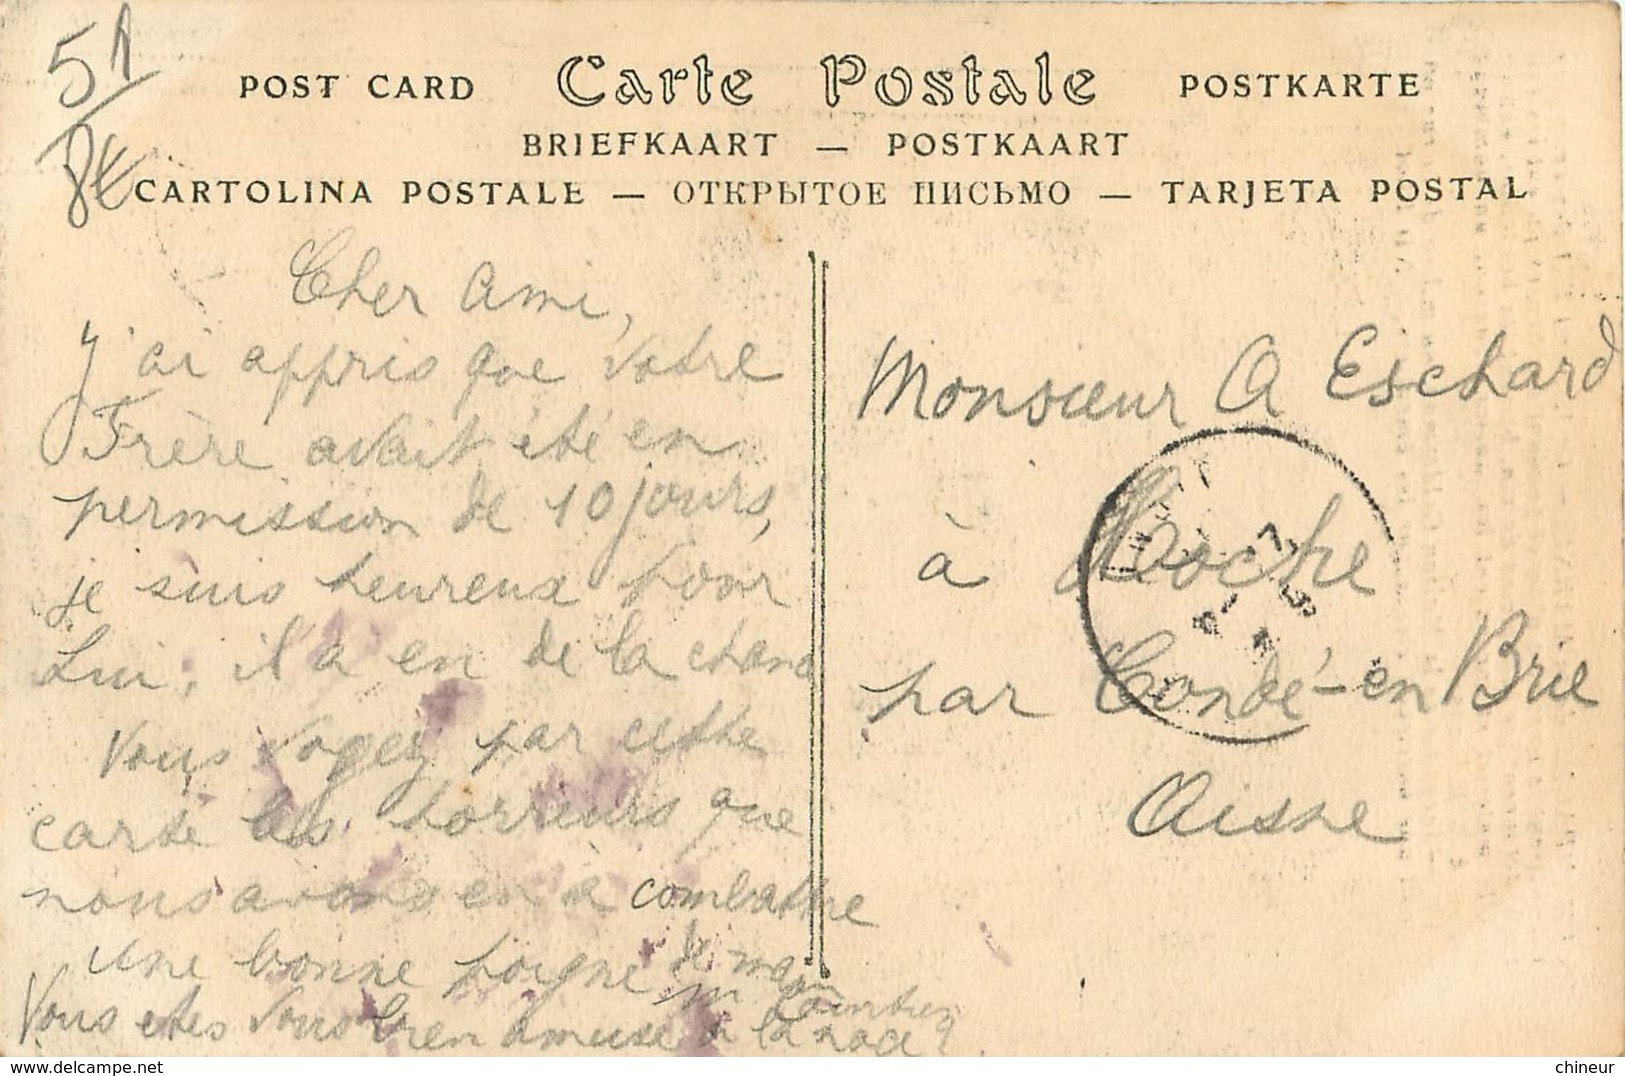 51
8€
POST CARD Carte Postale POSTKARTE
BRIEFKAART — POSTKAART
CARTOLINA POSTALE — ОТКРЫТОЕ ПИСЬМО — TARJETA POSTAL
Cher Ami,
J'ai appris que votre
Frère avait été en
permission de 10 jours,
je suis heureux pour
Lui; il a eu de la chance
Vous voyez par cette
carte les horreurs que
nous avons eu à combattre
une bonne poigne de main
Vous etes vous bien amusé à la noce?
Monsieur A Eschard
à
par Condé-en Brie
Aisne
delcampe.net
chineur